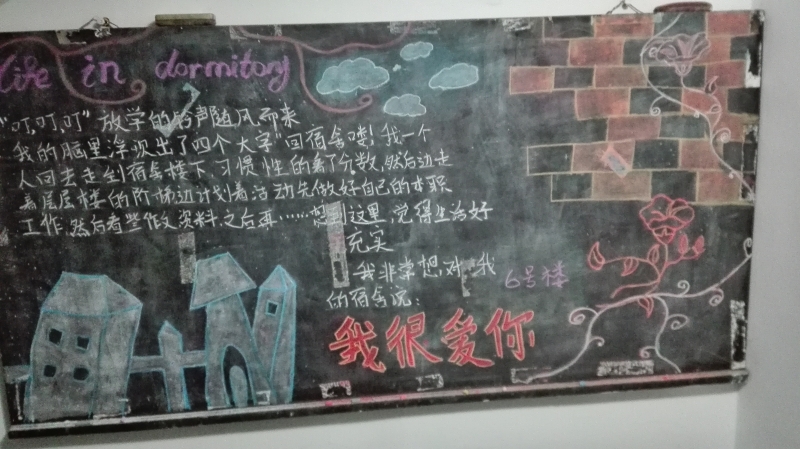 life in dormitory
"叮,叮,叮"放学的铃声随风而来
我的脑里浮次出了四个大字"回宿舍喽!我一个
人回去走到宿舍楼下习惯性的看了分数,然后边走
着层层楼的阶梯边计划着活动先做好自己的本职
工作,然后看些作文资料,之后再……想到这里,觉得生活好
充实
我非常想对我
的宿舍说:
6号楼
我很爱你